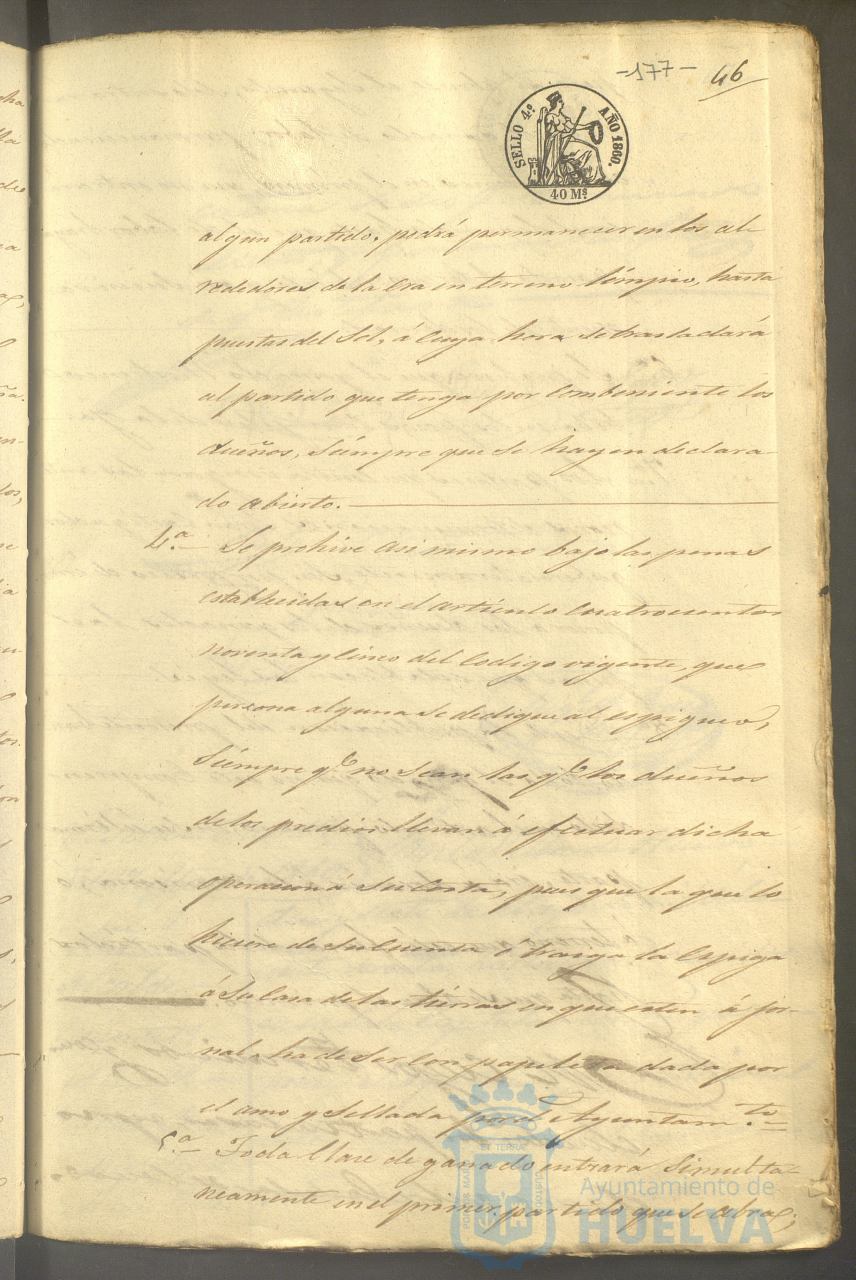 -177- 46
SELLO 4.º AÑO 1860.
40 Mˢ
algun partido, podrá permanecer en los al-
rededores de la Era en terreno limpio, hasta
puestas del Sol, á cuya hora se trasladará
al partido que tenga por combeniente los
dueños, siempre que se hayan declara-
do abierto.
4.ª Se prohive asi mismo bajo las penas
establecidas en el artículo cuatrocientos
noventa y cinco del Codigo vigente, que
persona alguna se dedique al espigueo,
siempre q.e no sean las q.e los dueños
de los predios llevan á efectuar dicha
operacion á su costa, pues que la que lo
hiciere de su cuenta ó traiga la Espiga
á su casa de las tierras en que esten á jor-
nal, ha de ser con papeleta dada por
el amo y sellada por el Ayuntam.to
5.ª Toda clase de ganado entrará simulta-
neamente en el primer partido que se abra;
Ayuntamiento de
HUELVA